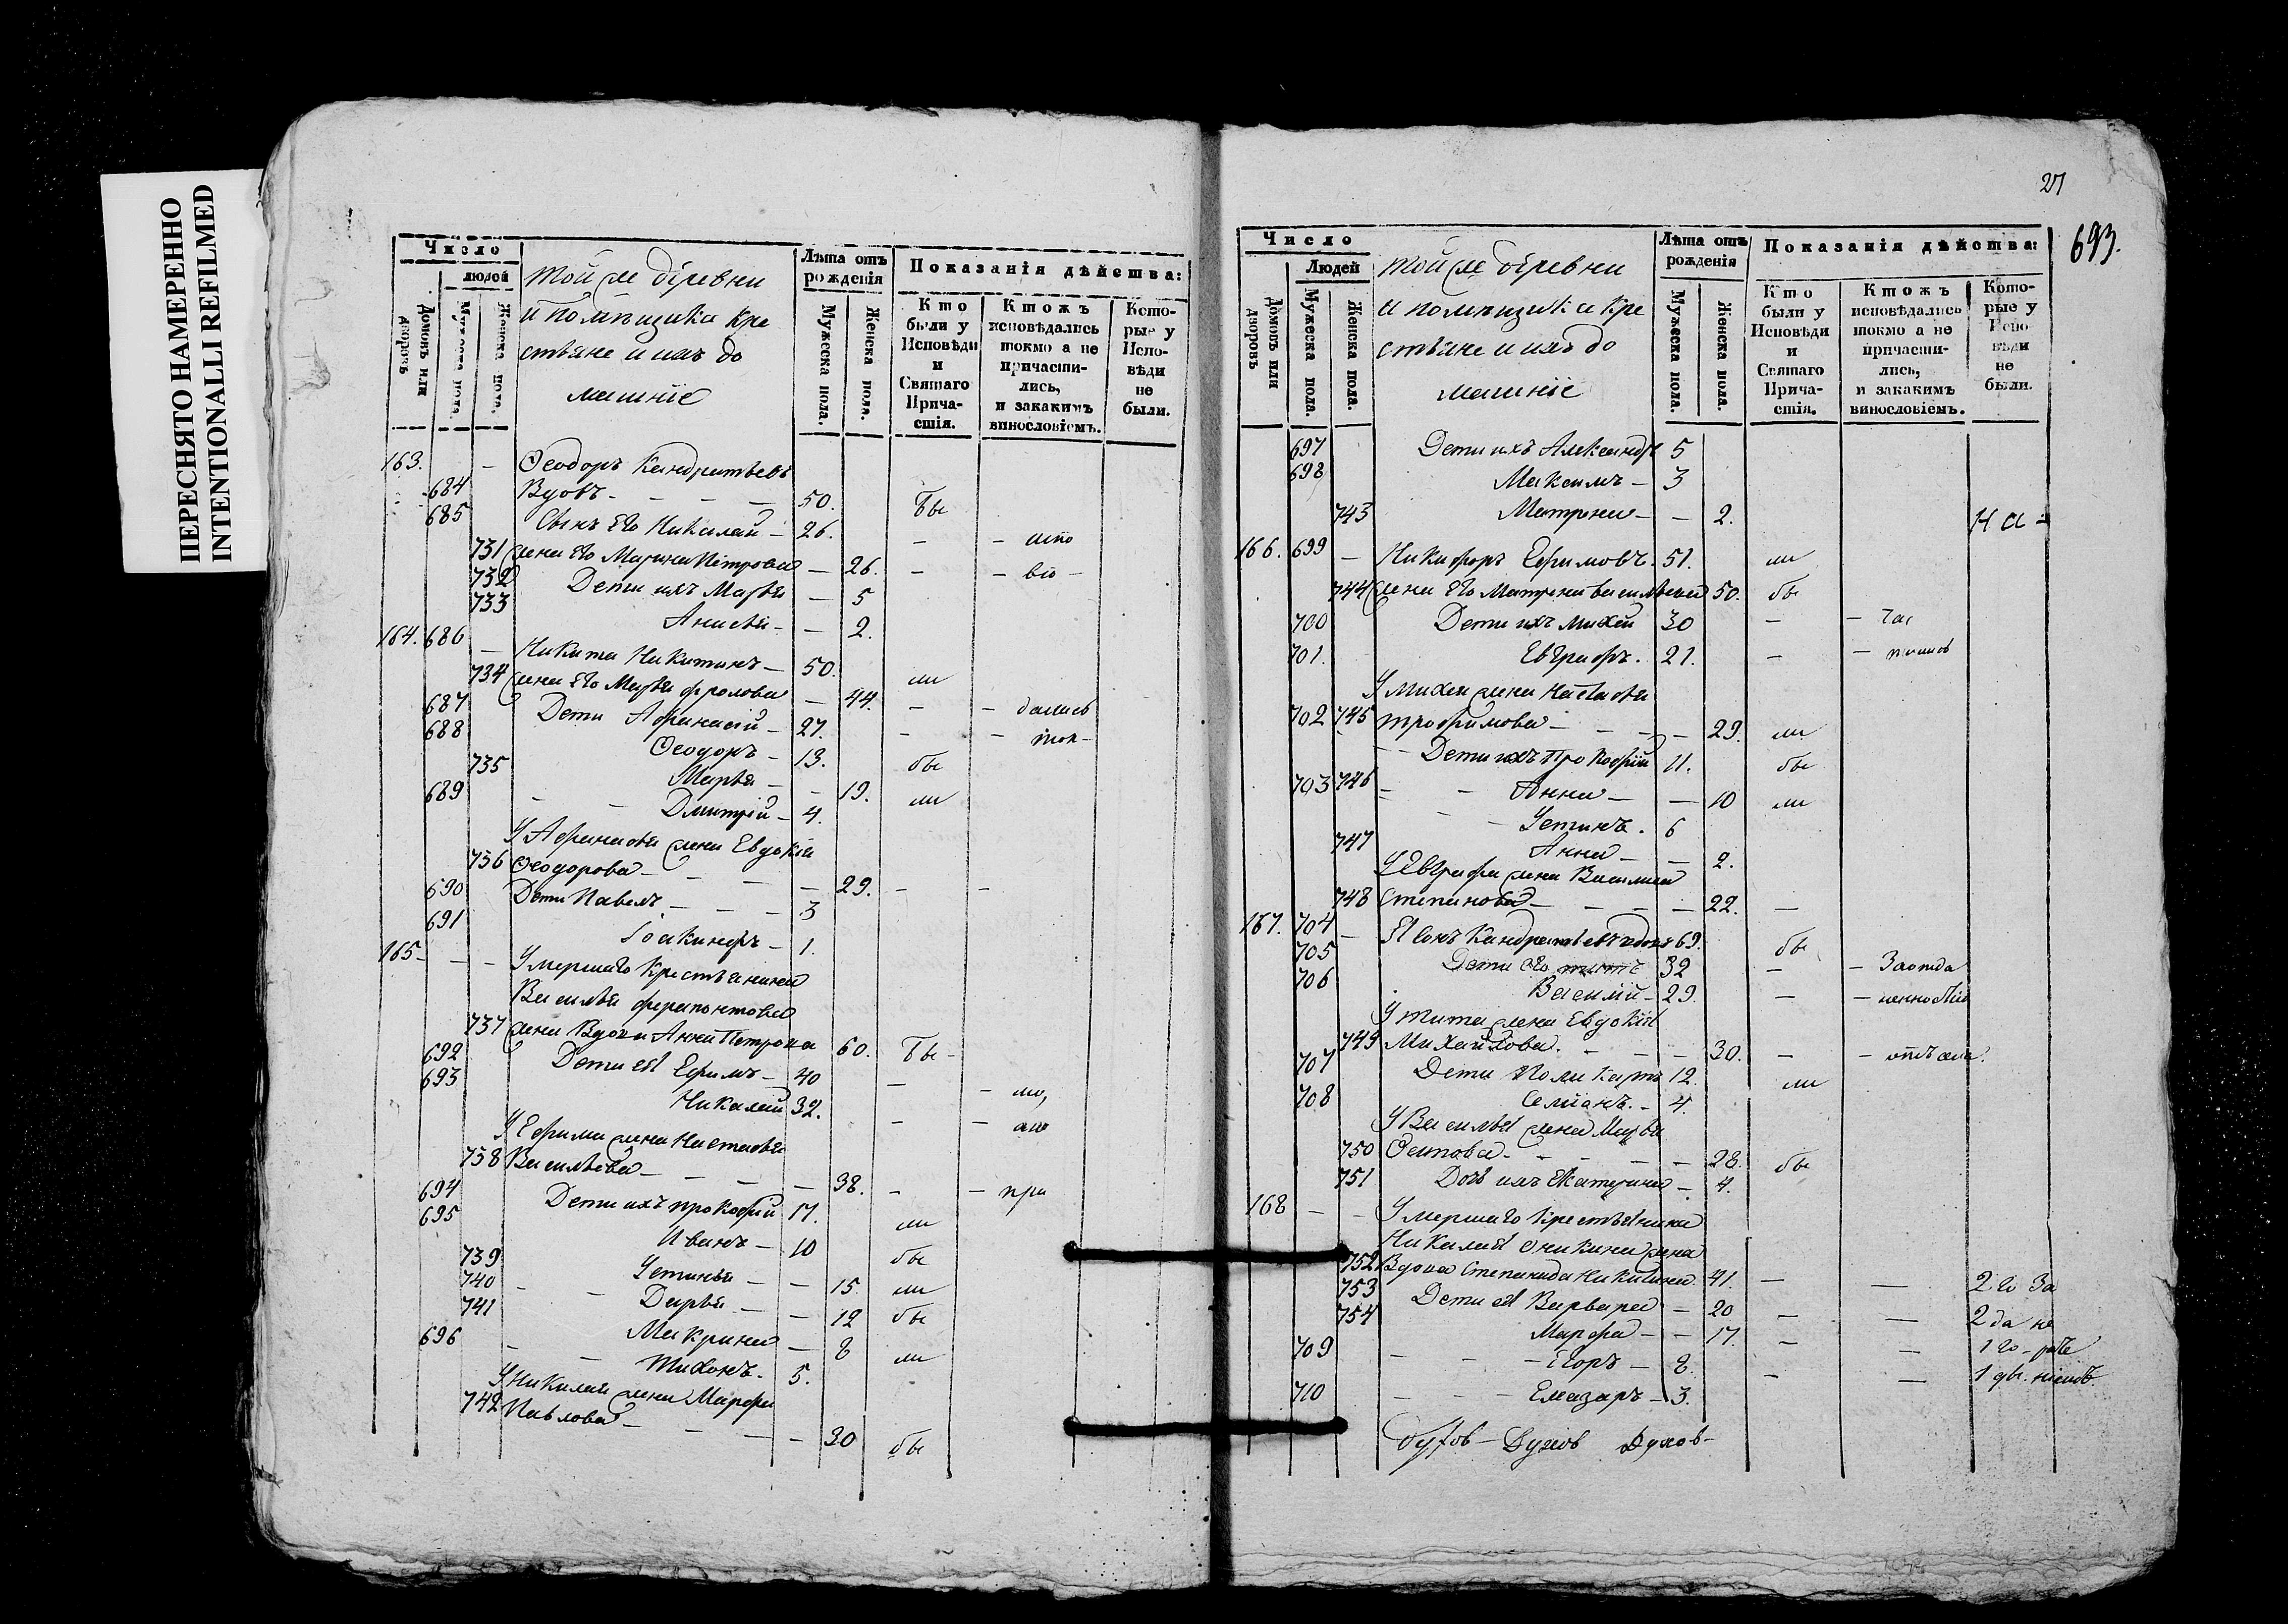 ПЕРЕСНЯТО НАМЕРЕННО
INTENTIONALLI REFILMED
Число
людей
Домовъ или дворовъ
Мужеска пола.
Женска пола.
той же деревни
и помещика кре
стьяне и ихъ до
машніе
Лѣта отъ рожденія
Мужеска пола.
Женска пола.
Показанія дѣйства:
Кто были у Исповѣди и Святаго Причастія.
Ктожъ исповѣдались токмо а не причастились, и закакимъ винословіемъ.
Которые у Исповѣди не были.
163. — Ѳеодоръ Кандратьевъ
684 Вдовъ — — — 50. бы
685 Сынъ его Николай — 26. —
731 жена его Марина Петрова — 26. —
732 Дети ихъ Марья — 5
733 Анисья — — 2.
164. 686 — Никита Никитинъ — 50. ли
734 жена его Марья фролова — 44. —
687 Дети Афанасій — 27. — — ток —
688 Ѳеодоръ — 13. бы
735 Марья — — 19. ли
689 — — Дмитрій — 4.
У Афанасья жена Евдокія
736 Ѳеодорова — — — — 29. — —
690 Дети Павелъ — — — 3
691 Іоакинфъ — 1.
165 — — — Умершаго Крестьянина
Василья ферапонтова
737 жена Вдова Анна Петрова 60. бы —
692 Дети ея Ефимъ — 40 —
693 Николай 32. —
У Ефима жена Настасья
738 Васильева — — — — 38. — — при
694 Дети ихъ прокофій 17. ли
695 Иванъ — 10 бы
739 Устинья — — 15. ли
740 — — Дарья — — 12 бы
741 Макрина — 8 ли
696 — — тихонъ. 5.
У Николая жена Марфа
742 Павлова — — — — 30 бы
27
693.
Число
Людей
Домовъ или дворовъ
Мужеска пола.
Женска пола.
той же деревни
и помещика кре
стьяне и ихъ до
машніе
Лѣта отъ рожденія
Мужеска пола.
Женска пола.
Показанія дѣйства:
Кто были у Исповѣди и Святаго Причастія.
Ктожъ исповѣдались токмо а не причастились, и закакимъ винословіемъ.
Которые у Исповѣди не были.
697 Дети ихъ Александръ 5
698 Максимъ — 3
743 Матрена — — 2. На —
166. 699 — Никифоръ Ефимовъ. 51. ли
744 жена его Матрена Васильева 50. бы
700 Дети ихъ Михей 30 — — час
701. Евграфъ. 21. —
У Михея жена Настасья
702 745 трофимова — — — — 29. ли
— — Дети ихъ Прокофій 11. бы
703 746 — — Анна — — 10 ли
— — Устинъ. 6
747 Анна — — 2.
У Евграфа жена Василиса
748 Степанова — — — — 22. —
167. 704 — Кандратьевъ вдовъ 69. бы
705 Дети его титъ 32 —
706 Василій — 29. —
У тита жена Евдокія
749 Михайлова. — — — 30. —
707 Дети Поликарпъ 12. ли
708 Семіонъ. — 4.
У Василья жена Марья
750 Осипова — — — — 28. бы
751 Дочь ихъ Екатерина — 4.
168 — — Умершаго крестьянина
Николая жена
752 Вдова Степанида Никитина 41 — — 2 го За
753 Дети ея Варвара — 20 — — 2 да не
754 Марфа — — 17. — —
709 — — — Егоръ — 8. — —
710 — — — Елазаръ — 3.
Духов —